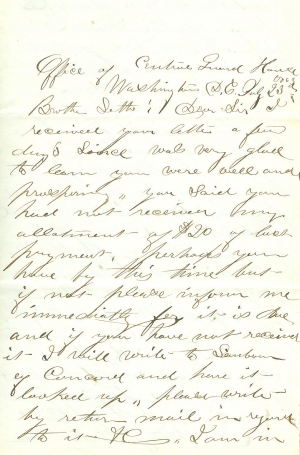 Office of Central Guard House
Washington D.C. July 23
Brother Seth! Dear Sir I
received your letter a few
days since was very glad
to learn you were well and
prospering,, you said you
had not received my
allotment of $20 of last
payment. perhaps you
have by this time but
if not please inform me
immediately for it is due
and if you have not received
it I will write to
Concord and have it
looked up,, please write
by return mail in regard
to it - &C,, I am in